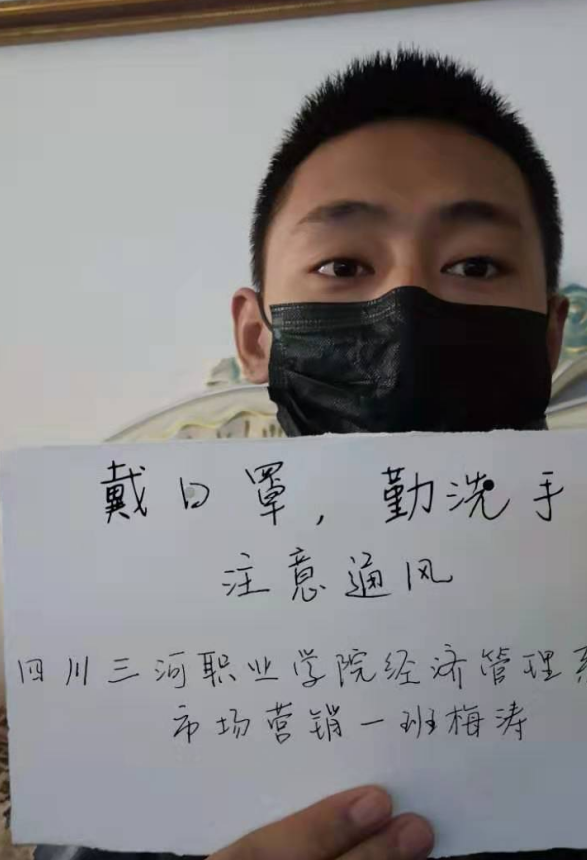 戴口罩，勤洗手
注意通风
四川三河职业学院经济管理系
市场营销一班梅涛